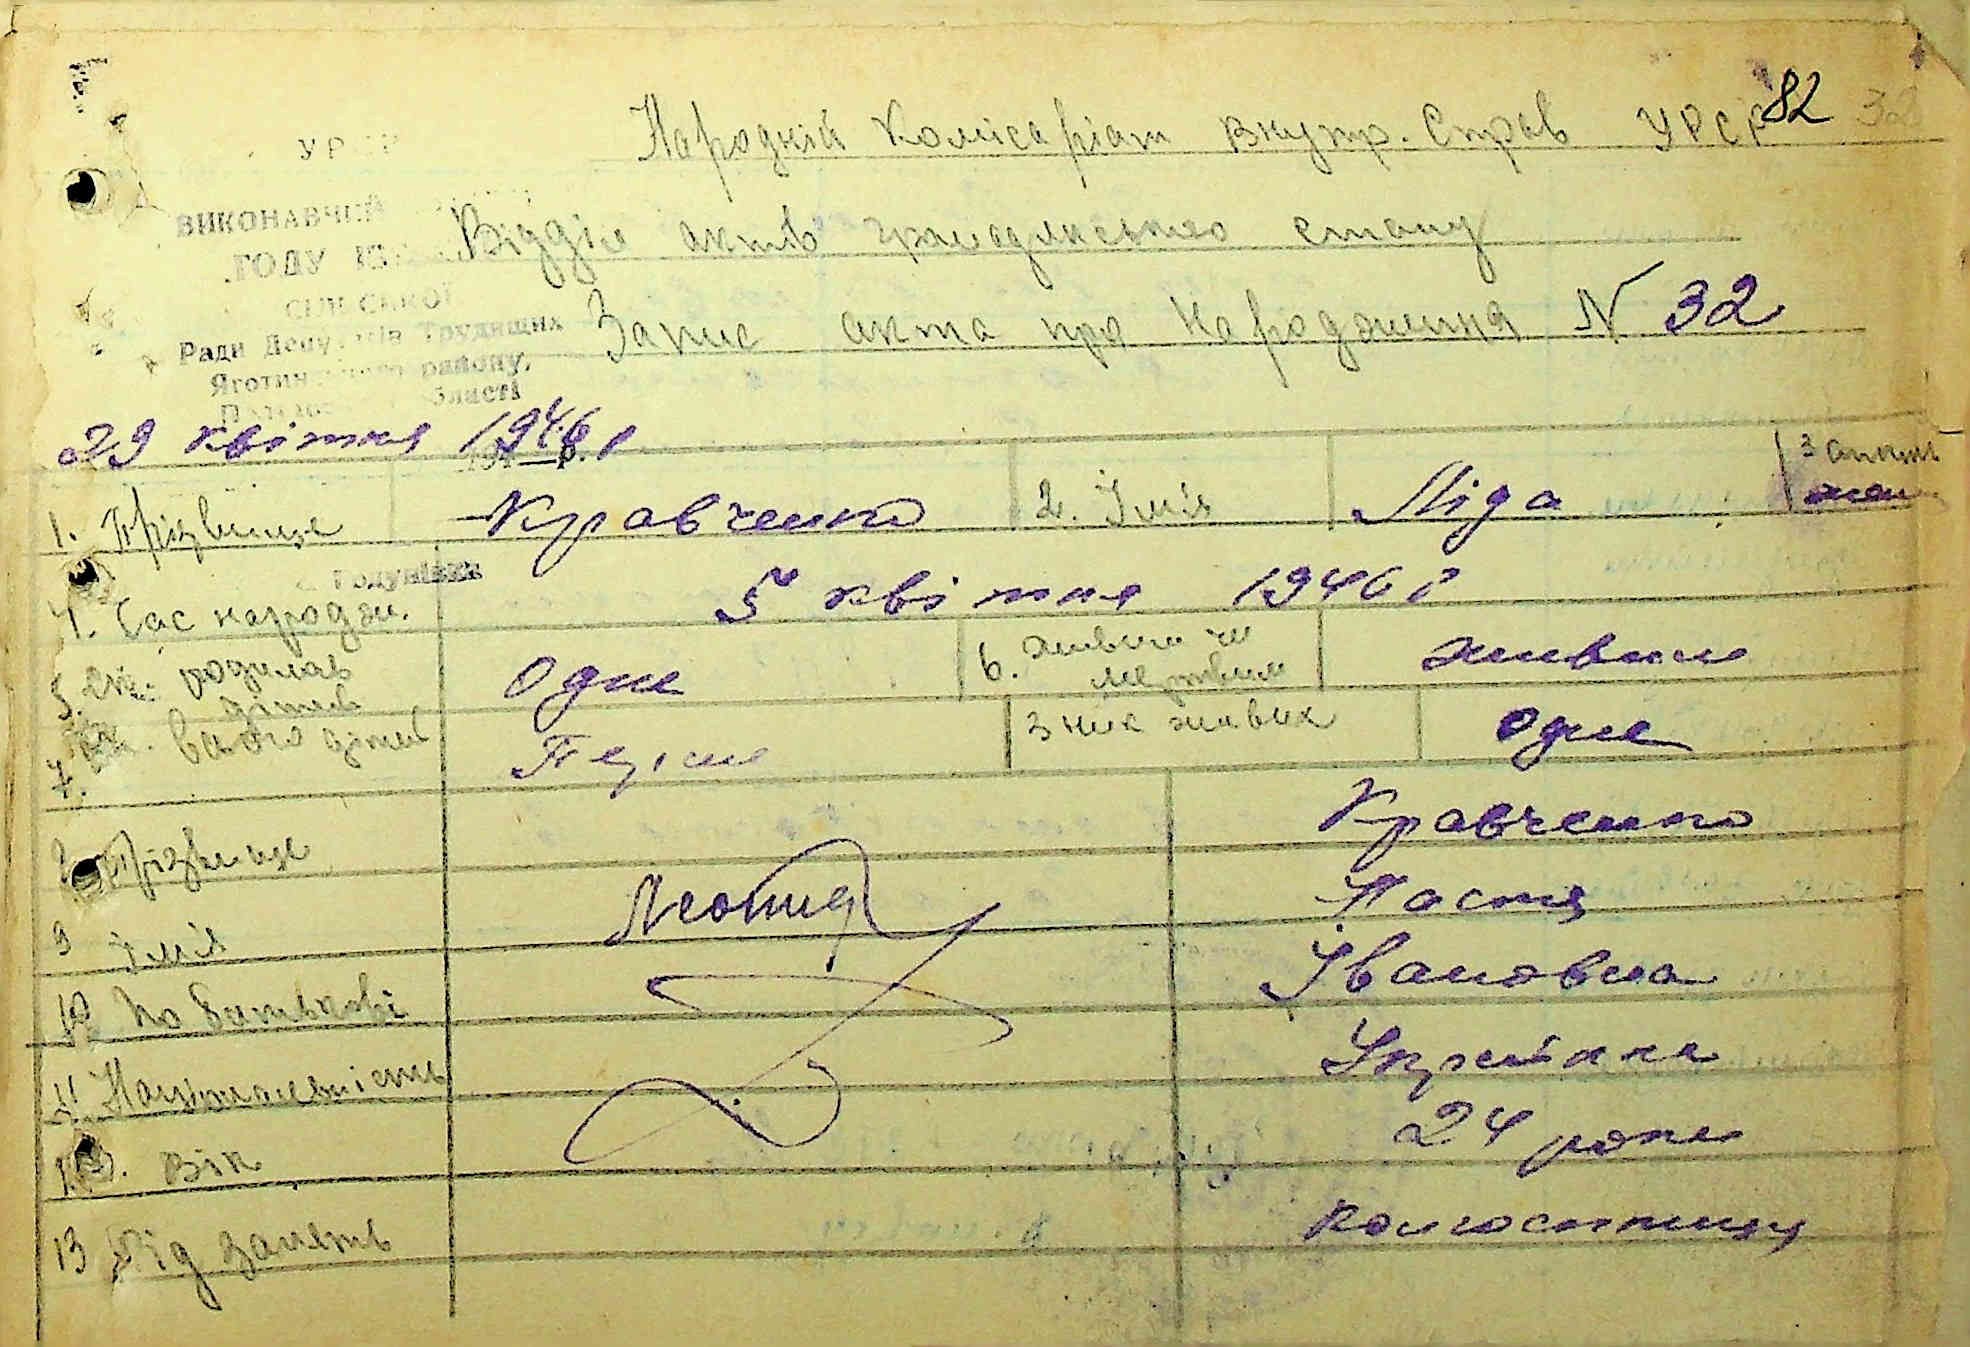 82 32
Народній Комісаріат Внутр. Справ УРСР
УРСР
ВИКОНАВЧИЙ
Відділ актів громадянського стану
СІЛЬСЬКОЇ
Запис акта про народження N 32
Ради Депутатів Трудящих
Яготинського району,
області
29 квітня 1946 р
1. Прізвище Кравченко 2. Імія Ліда 3 стать жен
с. Годунівка
4. Час народж. 5 квітня 1946 р
5. родилав дітей Одне 6. живим чи мертвим живим
7. всього дітей Перше з них живих одне
8 Прізвище Кравченко
9 імія Леонид Настя
10 По батькові Івановна
11 Національність Українка
12. Вік 24 роки
13 Рід занять колгоспниця